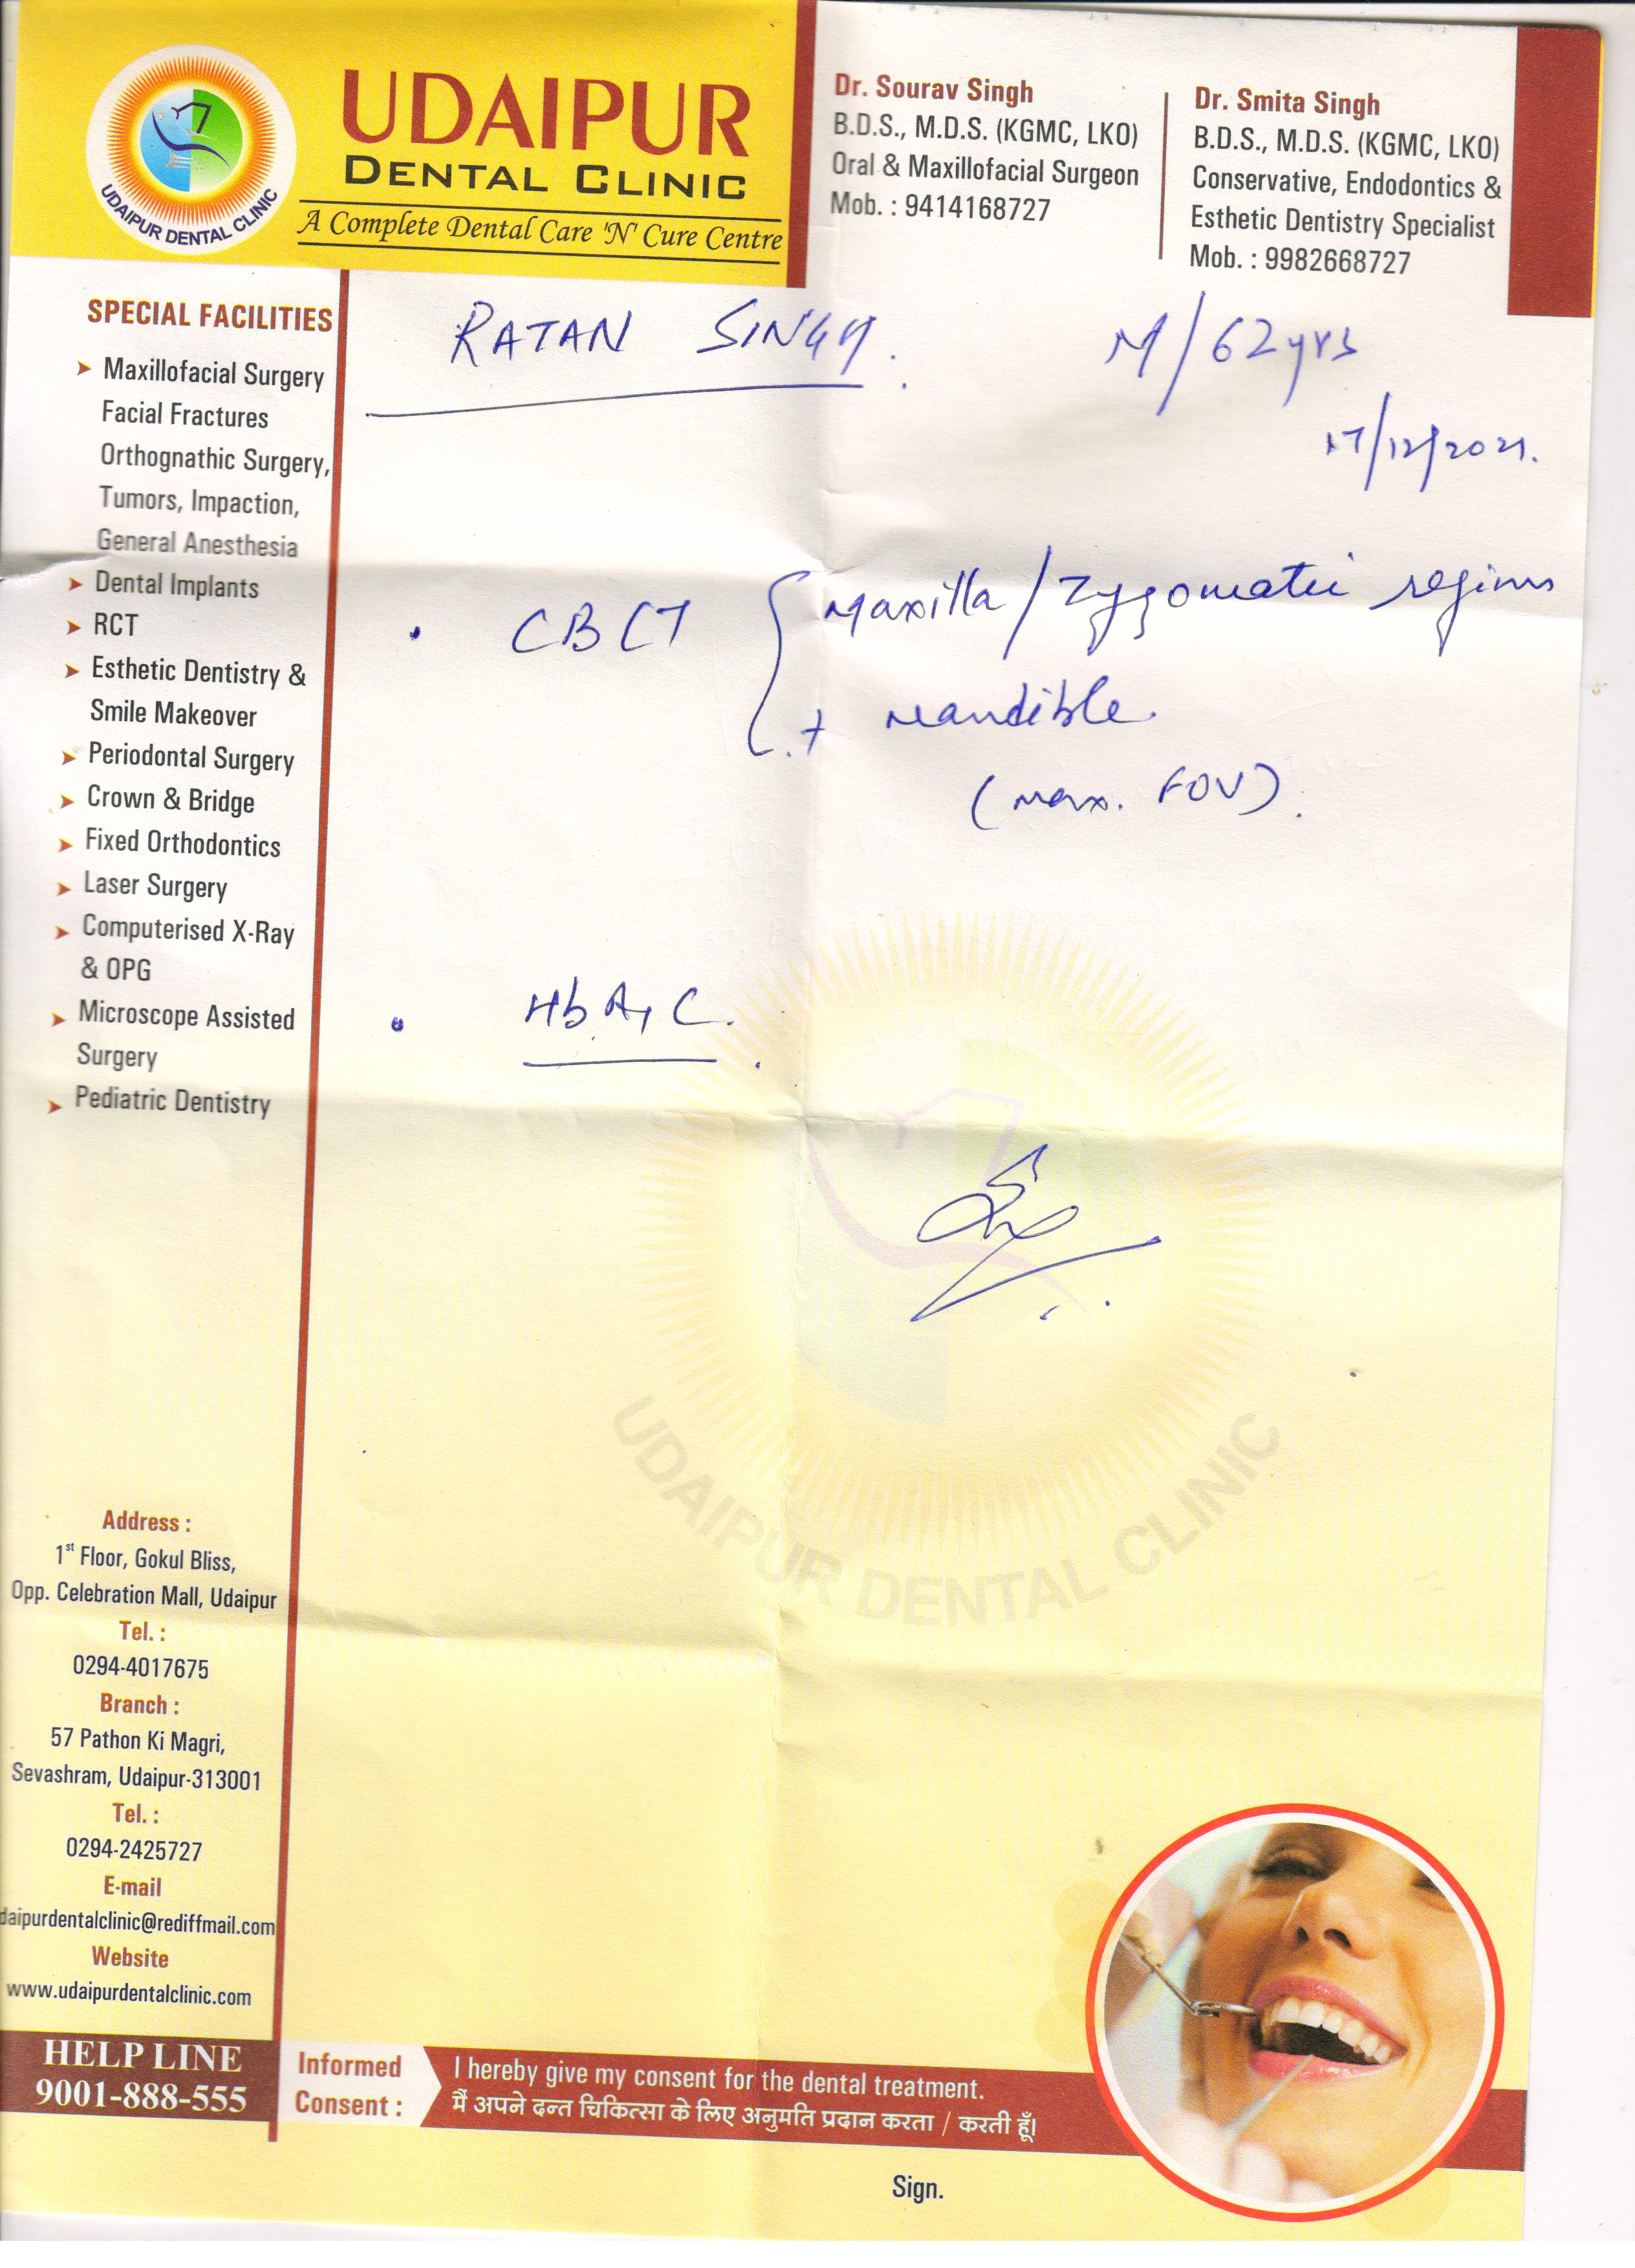 UDAIPUR
DENTAL CLINIC
A Complete Dental Care 'N' Cure Centre
UDAIPUR DENTAL CLINIC
Dr. Sourav Singh
B.D.S., M.D.S. (KGMC, LKO)
Oral & Maxillofacial Surgeon
Mob. : 9414168727
Dr. Smita Singh
B.D.S., M.D.S. (KGMC, LKO)
Conservative, Endodontics &
Esthetic Dentistry Specialist
Mob. : 9982668727
SPECIAL FACILITIES
➤ Maxillofacial Surgery
Facial Fractures
Orthognathic Surgery,
Tumors, Impaction,
General Anesthesia
➤ Dental Implants
➤ RCT
➤ Esthetic Dentistry &
Smile Makeover
➤ Periodontal Surgery
➤ Crown & Bridge
➤ Fixed Orthodontics
➤ Laser Surgery
➤ Computerised X-Ray
& OPG
➤ Microscope Assisted
Surgery
➤ Pediatric Dentistry
RATAN SINGH. M/62yrs
17/12/2021.
• CBCT { Maxilla/Zygomatic regions
+ mandible.
(max. FOV).
• HbA1C.
UDAIPUR DENTAL CLINIC
Address :
1st Floor, Gokul Bliss,
Opp. Celebration Mall, Udaipur
Tel. :
0294-4017675
Branch :
57 Pathon Ki Magri,
Sevashram, Udaipur-313001
Tel. :
0294-2425727
E-mail
daipurdentalclinic@rediffmail.com
Website
www.udaipurdentalclinic.com
HELP LINE
9001-888-555
Informed
Consent :
I hereby give my consent for the dental treatment.
मैं अपने दन्त चिकित्सा के लिए अनुमति प्रदान करता / करती हूँ।
Sign.